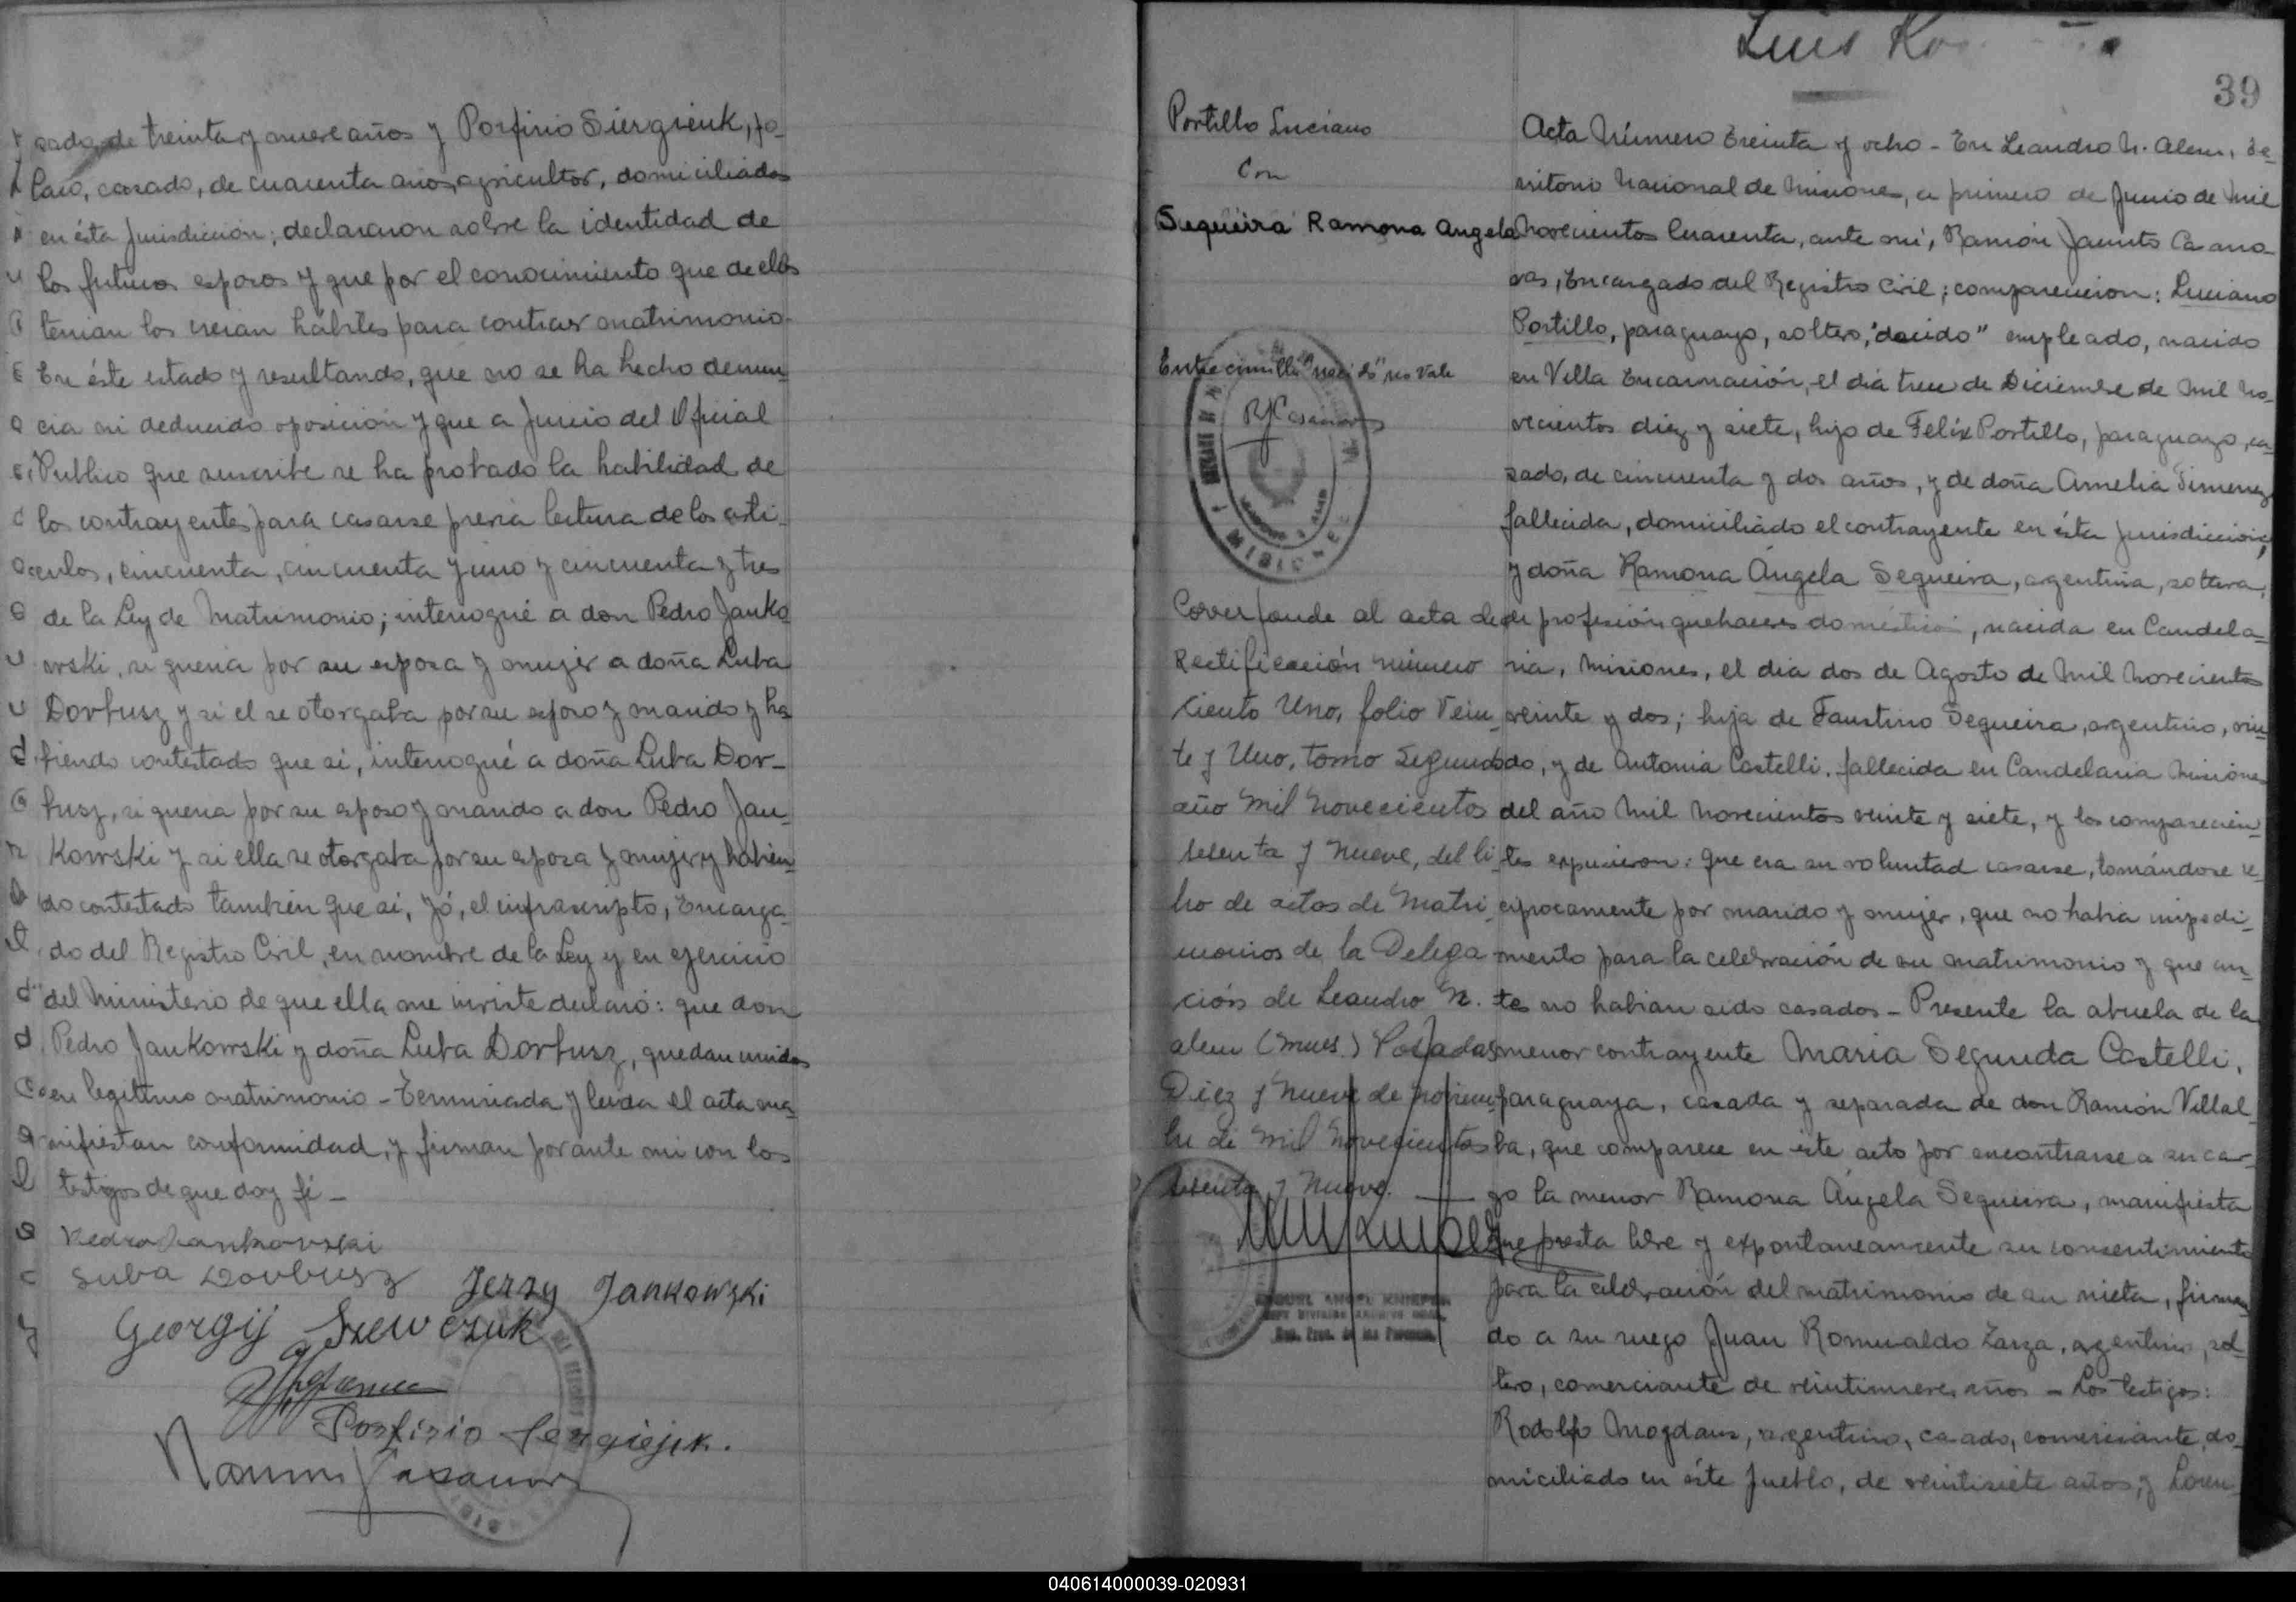 sado, de treinta y nueve años y Porfirio Siergieuk, po-
laco, casado, de cuarenta anos, agricultor, domiciliados
en ésta Jurisdicción; declararon sobre la identidad de
los futuros esposos y que por el conocimiento que de ellos
tenian los creian hábiles para contraer matrimonio.
En éste estado y resultando, que no se ha hecho denun-
cia ni deducido oposición y que a Juicio del Oficial
Publico que suscribe se ha probado la habilidad de
los contrayentes para casarse previa lectura de los arti-
culos, cincuenta, cincuenta y uno y cincuenta y tres
de la Ley de Matrimonio; interrogué a don Pedro Janko
wski, si queria por su esposa y mujer a doña Luba
Dorbusz y si el se otorgaba por su esposo y marido y ha
biendo contestado que si, interrogué a doña Luba Dor-
busz, si queria por su esposo y marido a don Pedro Jan-
Kowski y si ella se otorgaba por su esposa y mujer y habien-
do contestado tambien que si, Yó, el infrascripto, Encarga-
do del Registro Civil, en nombre de la Ley y en ejercicio
del Ministerio de que ella me inviste declaró: que don
Pedro Jankowski y doña Luba Dorbusz, quedan unidos
en legitimo matrimonio - Terminada y leida el acta ma-
nifiestan conformidad, y firman por ante mi con los
testigos de que doy fé -
Pedro Jankowski
Luba Dorbusz Jerzy Jankowski
Georgij Szewczuk
Porfirio
Ramon Casanovas
Luis
39
Portillo Luciano
Con
Sequeira Ramona Angela
Entrecomilla "nacido" no vale
RJCasanovas
MISIONES
Corresponde al acta de
Rectificación número
Ciento Uno, folio Vein-
te y Uno, tomo Segundo
año mil novecientos
sesenta y nueve, del li-
bro de actos de Matri-
monios de la Delega-
ción de Leandro N.
Alem (Mnes.) Posadas
Diez y Nueve de noviem-
bre de mil novecientos
sesenta y Nueve.
MIGUEL ANGEL
Acta Número Treinta y ocho - En Leandro N. Alem, Te-
rritorio Nacional de Misiones, a primero de Junio de mil
novecientos Cuarenta, ante mi, Ramón Jacinto Casano-
vas, Encargado del Registro Civil; comparecieron: Luciano
Portillo, paraguayo, soltero, "dacido" empleado, nacido
en Villa Encarnación, el día trece de Diciembre de mil no-
vecientos diez y siete, hijo de Felix Portillo, paraguayo, ca-
sado, de cincuenta y dos años, y de doña Amelia Jimenez
fallecida, domiciliado el contrayente en ésta Jurisdicción;
y doña Ramona Ángela Sequeira, argentina, soltera,
de profesión quehaceres domésticos, nacida en Candela-
ria, Misiones, el dia dos de Agosto de mil novecientos
veinte y dos; hija de Faustino Sequeira, argentino, viu-
do, y de Antonia Castelli, fallecida en Candelaria Misiones
del año mil novecientos veinte y siete, y los comparecien-
tes expusieron: Que era su voluntad casarse, tomándose re-
ciprocamente por marido y mujer, que no habia impedi-
mento para la celebración de su matrimonio y que an-
tes no habian sido casados - Presente la abuela de la
menor contrayente Maria Segunda Castelli,
paraguaya, casada y separada de don Ramón Villal-
ba, que comparece en éste acto por encontrarse a su car-
go la menor Ramona Ángela Sequeira, manifiesta
que presta libre y expontaneamente su consentimiento
para la celebración del matrimonio de su nieta, firman-
do a su ruego Juan Romualdo Zarza, argentino, sol-
tero, comerciante de veintinueve años - Los testigos:
Rodolfo Mogdans, argentino, casado, comerciante, do-
miciliado en éste pueblo, de veintisiete años, y Loren-
040614000039-020931